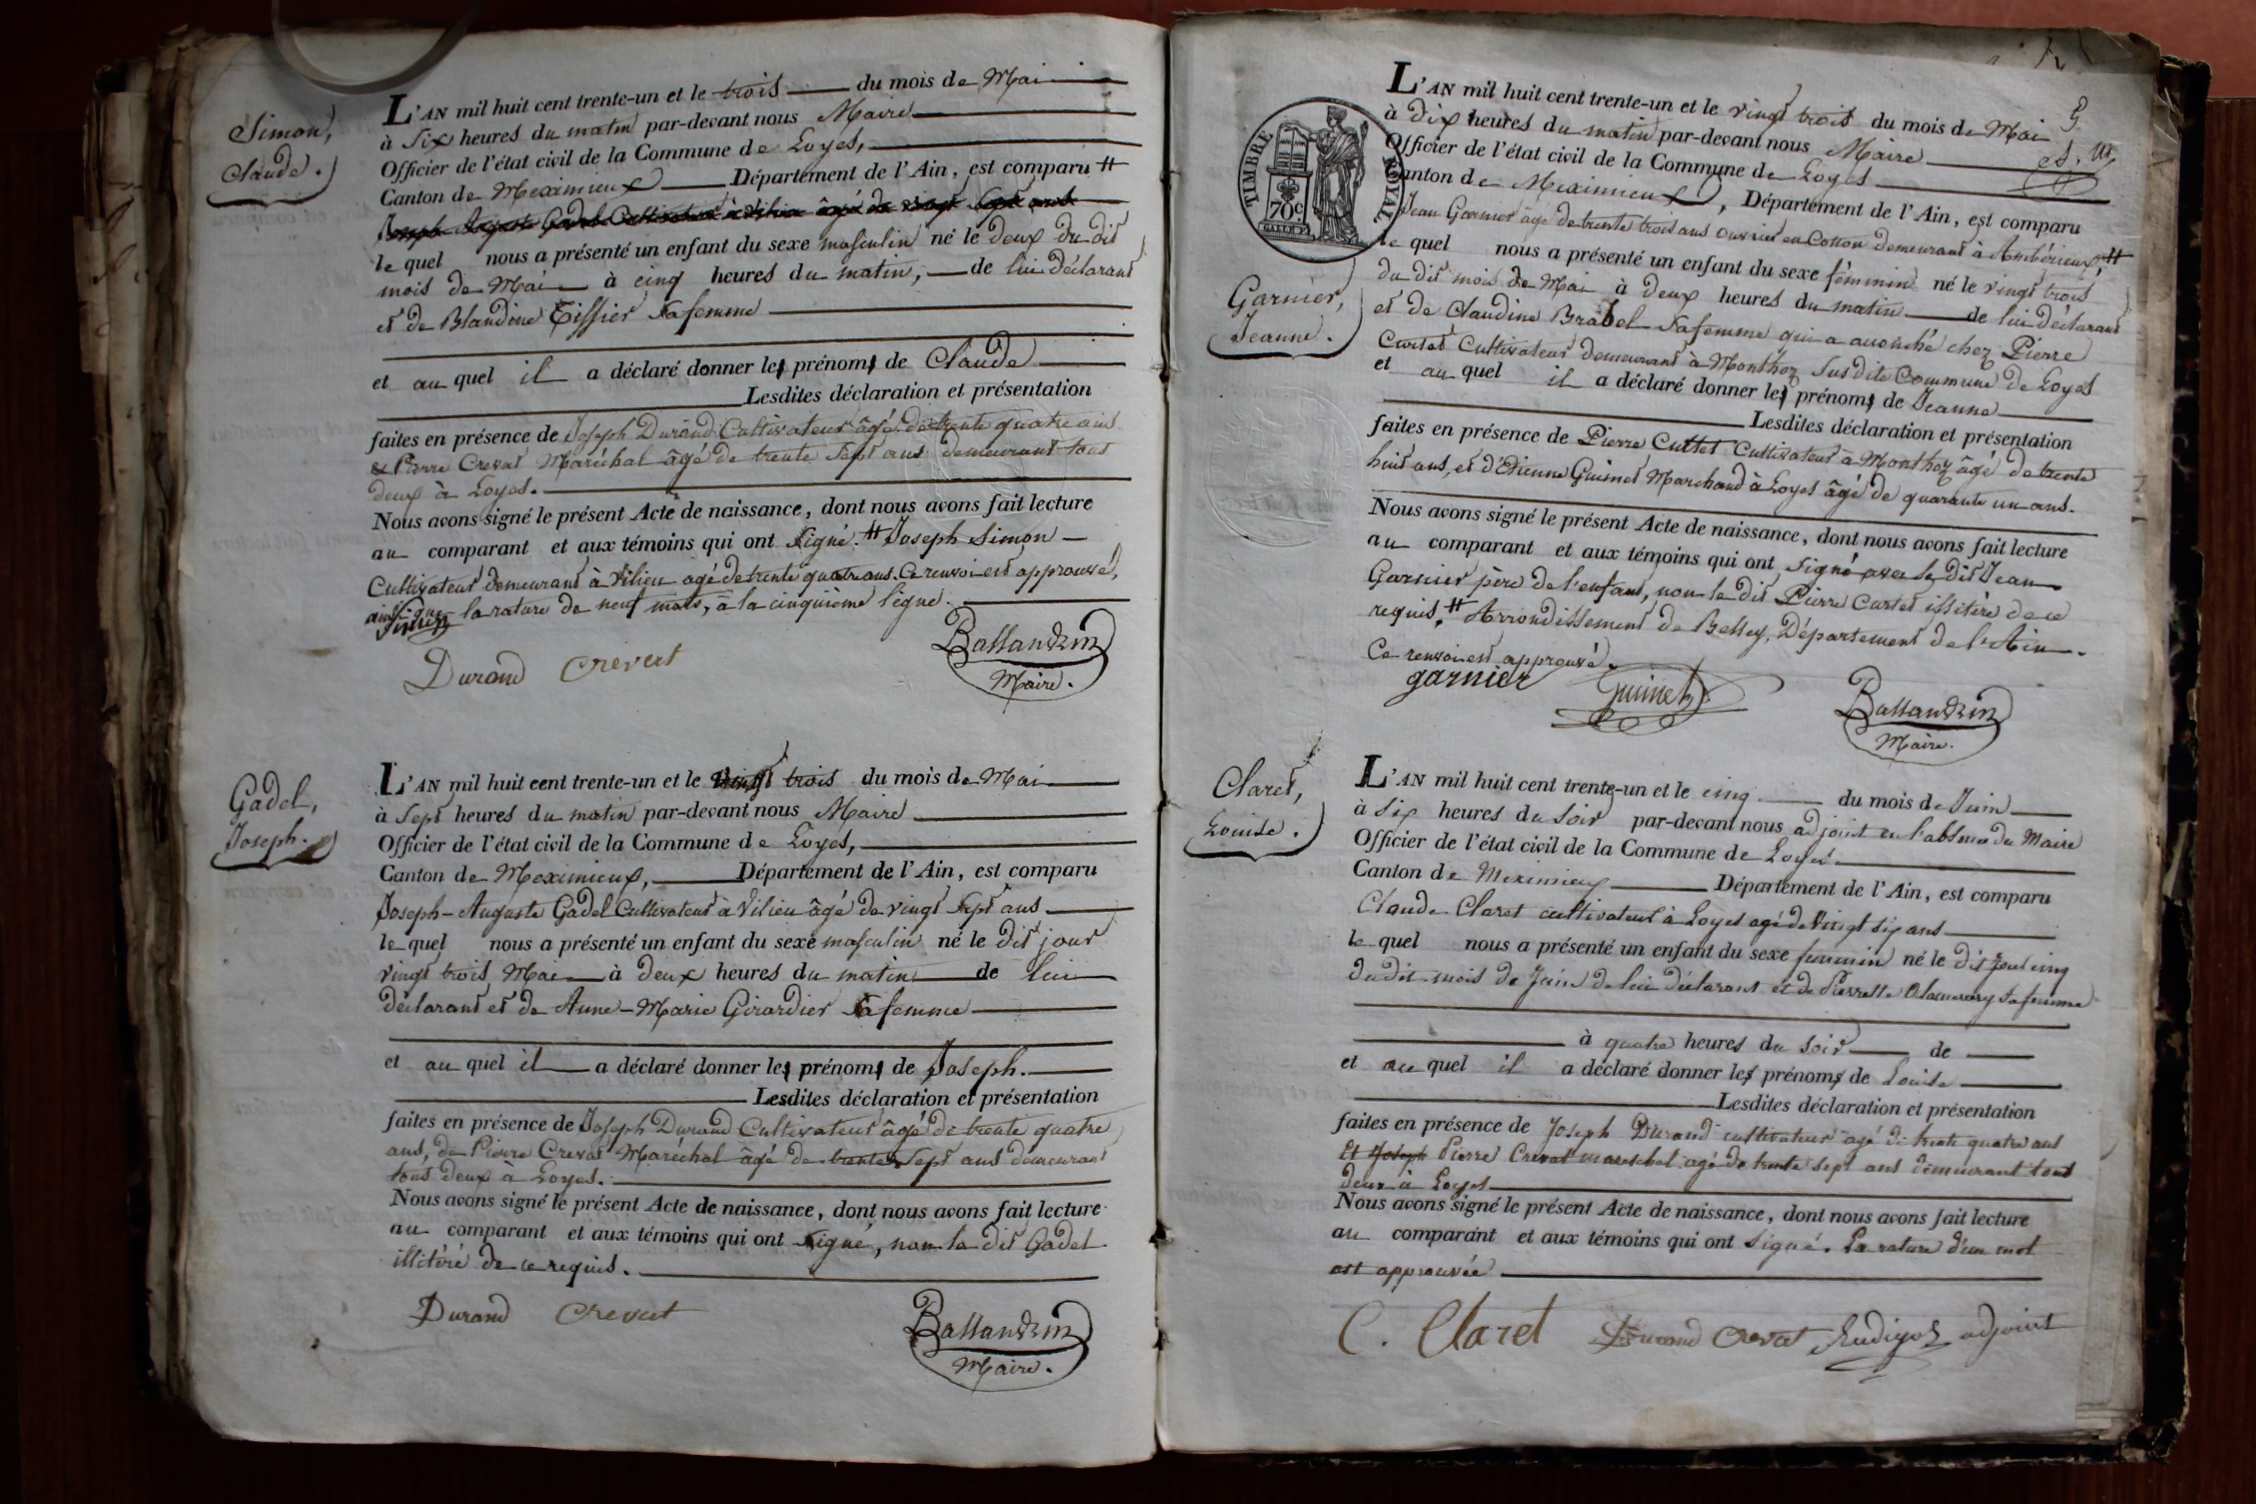 Simon,
Claude.
L'AN mil huit cent trente-un et le trois du mois de Mai
à Six heures du matin par-devant nous Maire
Officier de l'état civil de la Commune de Loyes,
Canton de Meximieux Département de l'Ain, est comparu #
Joseph Auguste Gadel Cultivateur à Vilieu âgé de vingt Sept ans
le quel nous a présenté un enfant du sexe masculin né le deux du dit
mois de Mai à cinq heures du matin, de lui déclarant
et de Blandine Tissier Sa femme
et au quel il a déclaré donner les prénoms de Claude
Lesdites déclaration et présentation
faites en présence de Joseph Durand Cultivateur âgé de trente quatre ans
& Pierre Crevat Maréchal âgé de trente Sept ans demeurant tous
deux à Loyes.
Nous avons signé le présent Acte de naissance, dont nous avons fait lecture
au comparant et aux témoins qui ont Signé. # Joseph Simon
Cultivateur demeurant à Vilieu âgé de trente quatre ans. Ce renvoi est approuvé,
ainsi que la rature de neuf mots, à la cinquième ligne.
Simon
Durand Crevat Ballandrin
Maire.
Gadel,
Joseph.
L'AN mil huit cent trente-un et le vingt trois du mois de Mai
à Sept heures du matin par-devant nous Maire
Officier de l'état civil de la Commune de Loyes,
Canton de Meximieux, Département de l'Ain, est comparu
Joseph-Auguste Gadel Cultivateur à Vilieu âgé de vingt Sept ans
le quel nous a présenté un enfant du sexe masculin né le dit jour
vingt trois Mai à deux heures du matin de lui
déclarant et de Anne-Marie Girardier Sa femme
et au quel il a déclaré donner les prénoms de Joseph.
Lesdites déclaration et présentation
faites en présence de Joseph Durand Cultivateur âgé de trente quatre
ans, de Pierre Crevat Maréchal âgé de trente Sept ans demeurant
tous deux à Loyes.
Nous avons signé le présent Acte de naissance, dont nous avons fait lecture
au comparant et aux témoins qui ont Signé, non le dit Gadel
illitéré de ce requis.
Durand Crevat Ballandrin
Maire.
TIMBRE ROYAL
70c
Garnier,
Jeanne.
L'AN mil huit cent trente-un et le vingt trois du mois de Mai
à dix heures du matin par-devant nous Maire
Officier de l'état civil de la Commune de Loyes
Canton de Meximieux, Département de l'Ain, est comparu
Jean Garnier âgé de trente trois ans ouvrier en Cotton demeurant à Ambérieux, #
le quel nous a présenté un enfant du sexe féminin né le vingt trois
du dit mois de Mai à deux heures du matin de lui déclarant
et de Claudine Brabel Sa femme qui a accouché chez Pierre
Curtet Cultivateur demeurant à Monthoz Susdite Commune de Loyes
et au quel il a déclaré donner les prénoms de Jeanne
Lesdites déclaration et présentation
faites en présence de Pierre Curtet Cultivateur à Monthoz âgé de trente
huit ans, et d'Etienne Guinet Marchand à Loyes âgé de quarante un ans.
Nous avons signé le présent Acte de naissance, dont nous avons fait lecture
au comparant et aux témoins qui ont Signé avec le dit Jean
Garnier père de l'enfant, non le dit Pierre Curtet illitéré de ce
requis. # Arrondissement de Belley, Département de l'Ain.
Ce renvoi est approuvé.
garnier Guinet Ballandrin
Maire.
Claret,
Louise.
L'AN mil huit cent trente-un et le cinq du mois de Juin
à six heures du soir par-devant nous adjoint en l'absence du Maire
Officier de l'état civil de la Commune de Loyes
Canton de Meximieux Département de l'Ain, est comparu
Claude Claret cultivateur à Loyes agé de vingt six ans
le quel nous a présenté un enfant du sexe feminin né le dit jour cinq
du dit mois de Juin de lui déclarant et de Pierrette sa femme
à quatre heures du soir de
et au quel il a déclaré donner les prénoms de Louise
Lesdites déclaration et présentation
faites en présence de Joseph Durand cultivateur agé de trente quatre ans
Et Joseph Pierre Crevat mareschal agé de trente sept ans demeurant tous
deux à Loyes
Nous avons signé le présent Acte de naissance, dont nous avons fait lecture
au comparant et aux témoins qui ont signé. La rature d'un mot
est approuvée
C. Claret Durand Crevat adjoint